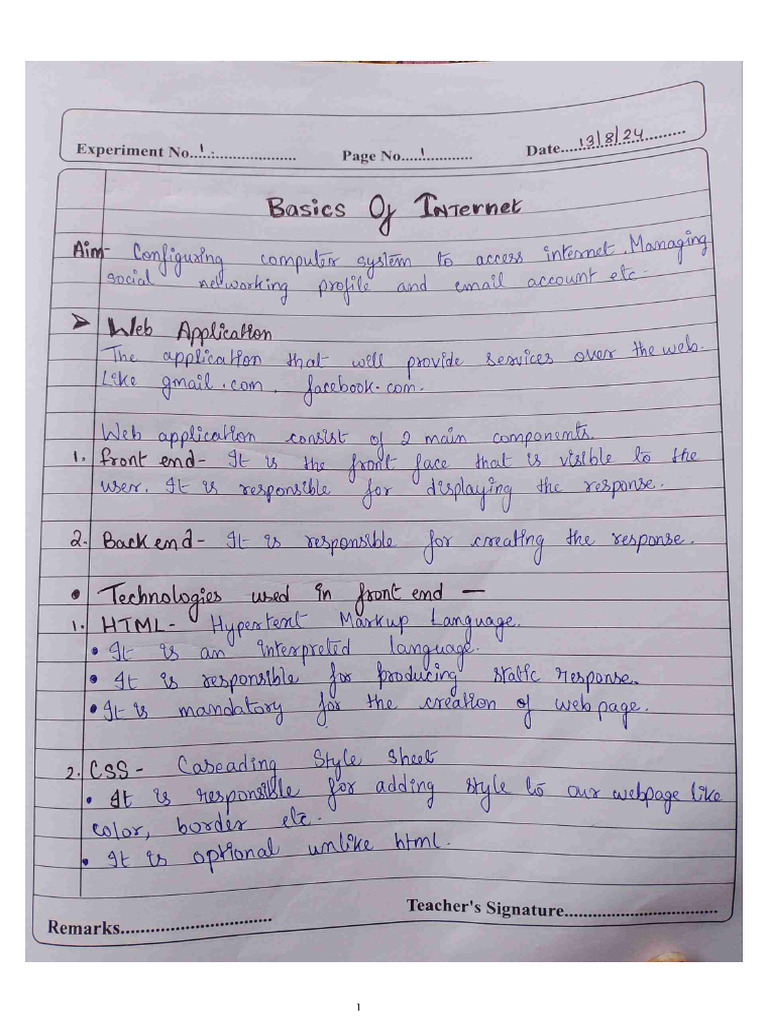 Experiment No. 1. Page No. 1 Date 13/8/24
Basics Of Internet
Aim- Configuring computer system to access internet. Managing
social networking profile and email account etc-
➤ Web Application
The application that will provide services over the web.
Like gmail.com, facebook.com.
Web application consist of 2 main components.
1. front end- It is the front face that is visible to the
user. It is responsible for displaying the response.
2. Back end- It is responsible for creating the response.
• Technologies used in front end —
1. HTML- Hypertext Markup Language.
• It is an interpreted language.
• It is responsible for producing static response.
• It is mandatory for the creation of web page.
2. CSS- Cascading Style Sheet
• It is responsible for adding style to our webpage like
color, border etc.
• It is optional unlike html.
Teacher's Signature
Remarks
1